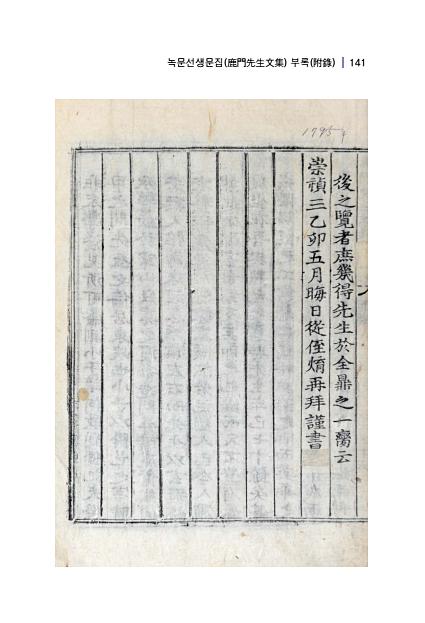 녹문선생문집(鹿門先生文集) 부록(附錄) | 141
1795年
後之覽者庶幾得先生於全鼎之一臠云
崇禎三乙卯五月晦日從侄焴再拜謹書